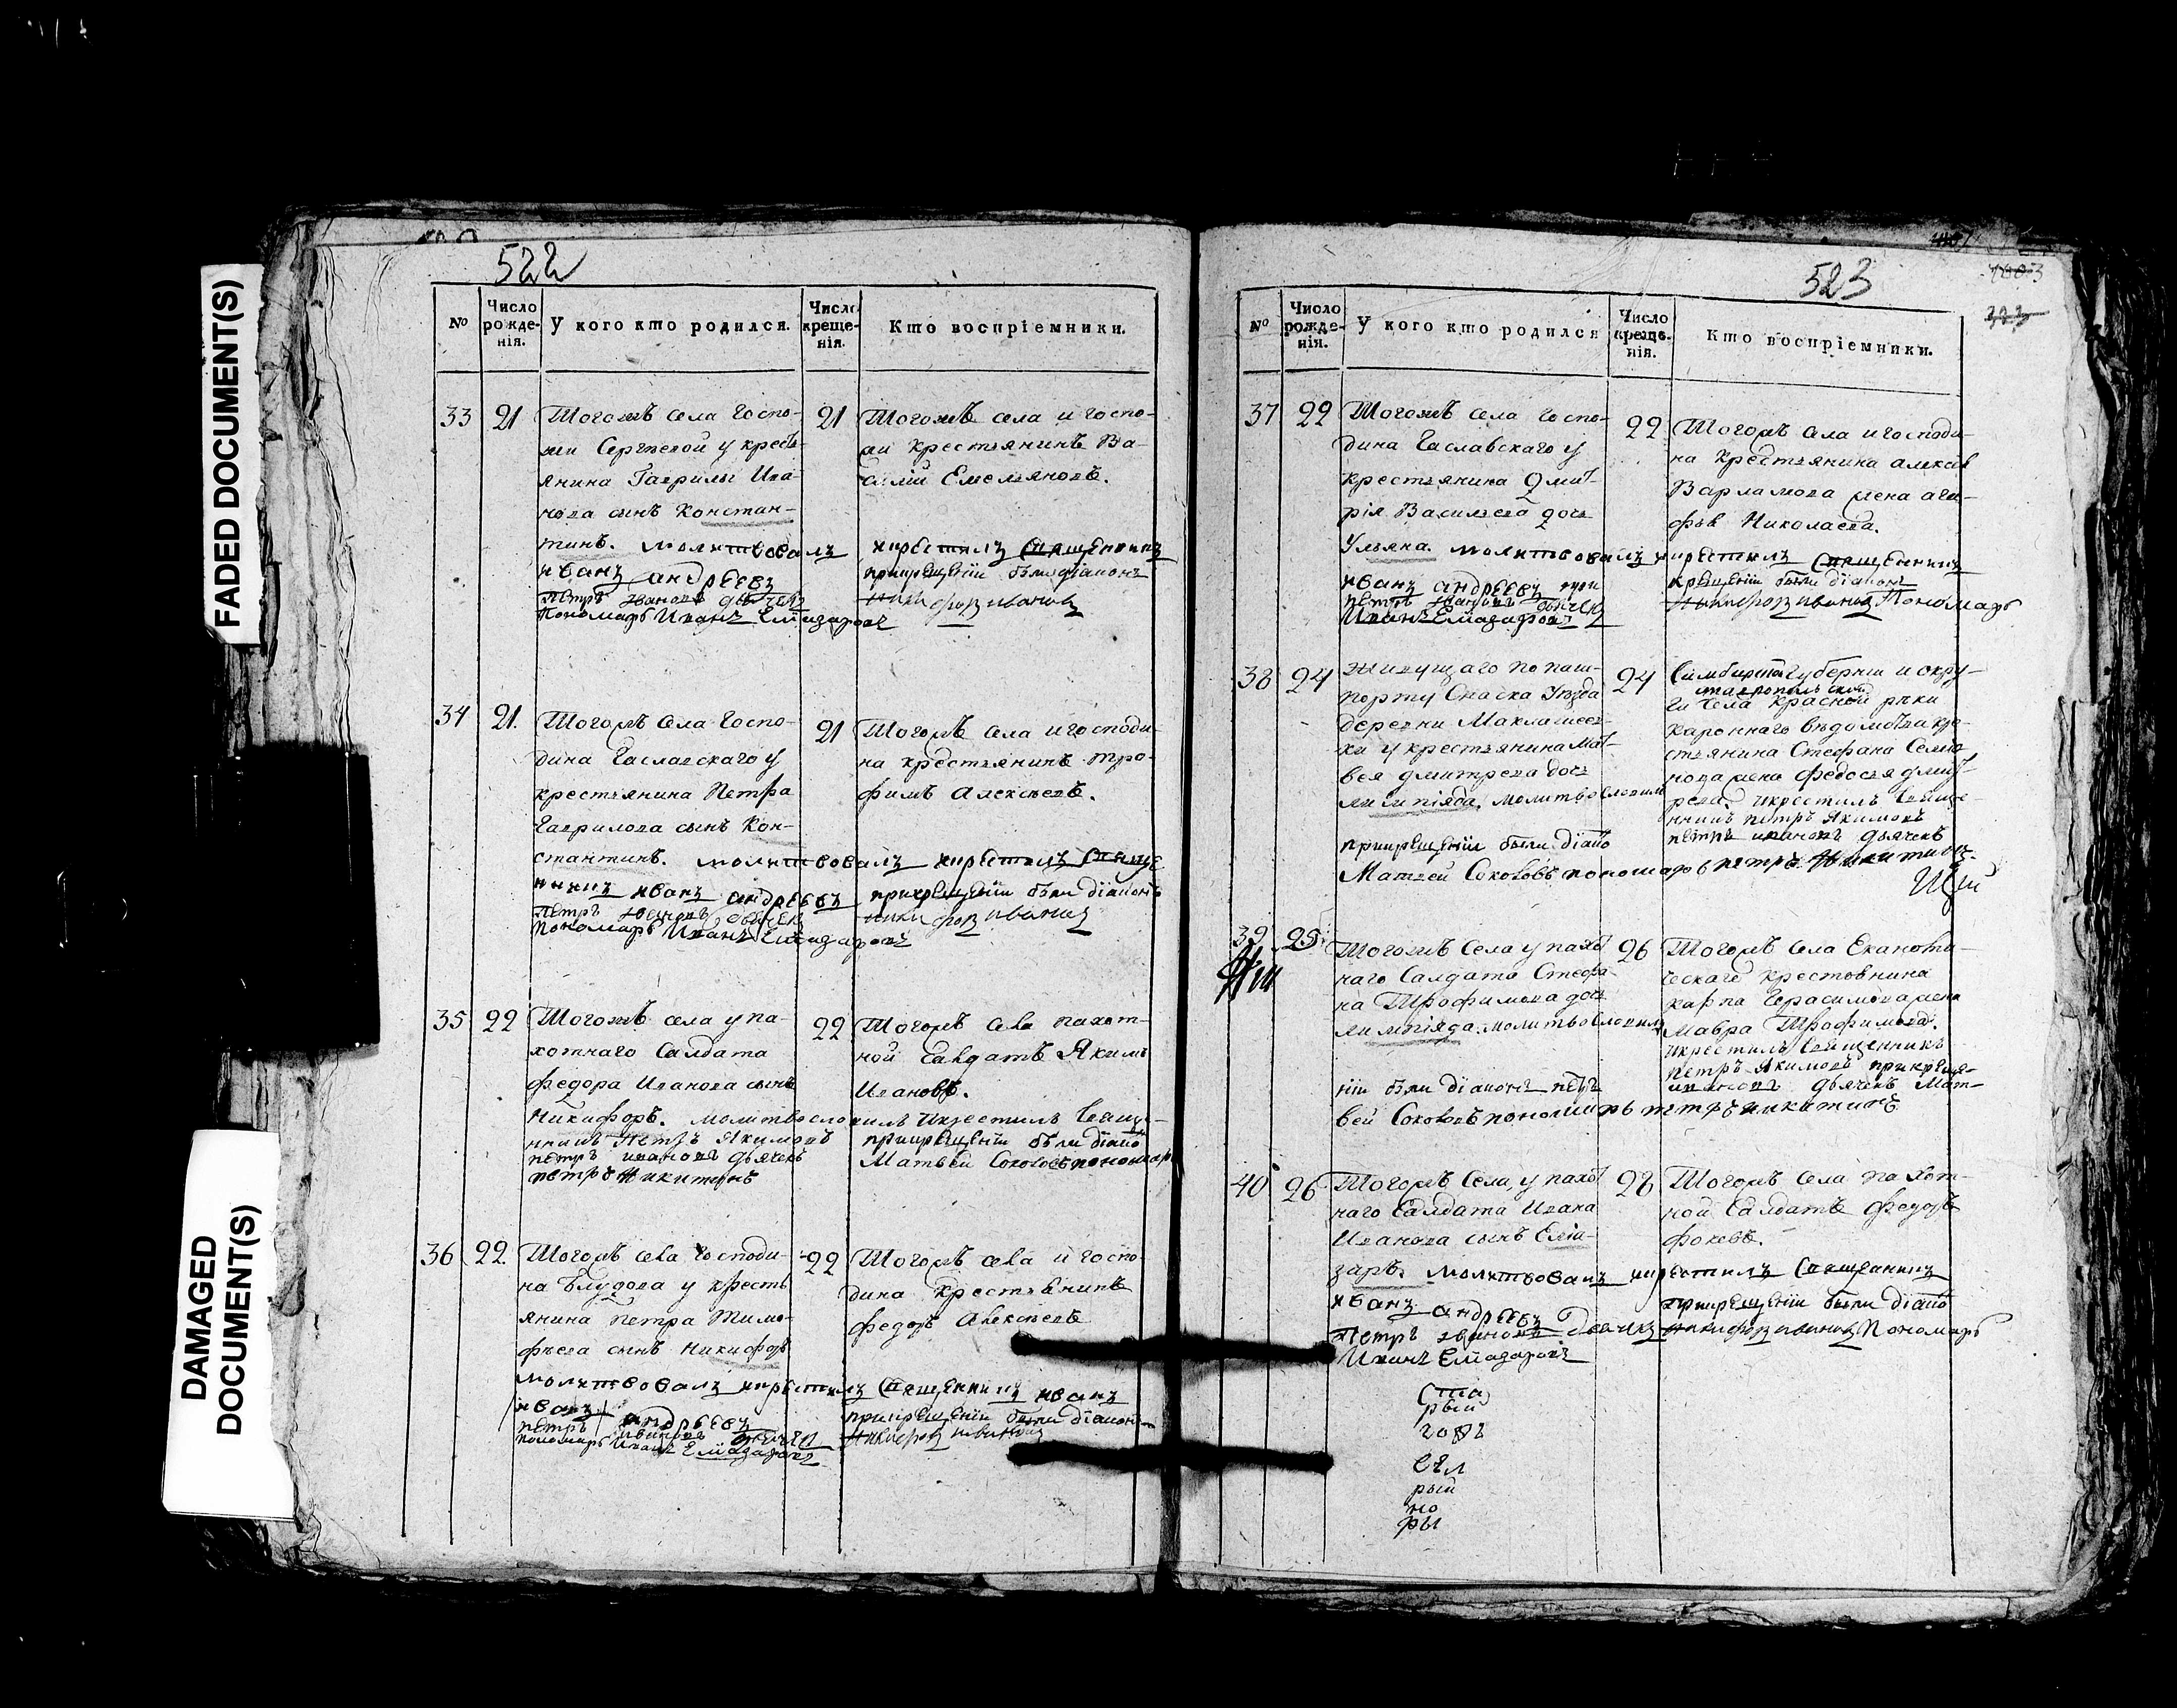 FADED DOCUMENT(S)
DAMAGED
DOCUMENT(S)
522
№
Число рожде-нія.
У кого кто родился.
Число креще-нія.
Кто воспріемники.
33
21
Тогожъ села Госпо-
жи Сергѣевой у кресть
янина Гаврилы Ива
нова сынъ Констан-
тинъ. молитвовалъ
иванъ андрѣевъ
петръ ивановъ дьячекъ
Пономарь Иванъ Елиазаровъ
21
Тогожъ села и госпо-
жи крестьянинъ Ва-
силій Емельяновъ.
икрестилъ Священникъ
прикрещеніи были діаконъ
Никифоръ ивановъ
34
21.
Тогожъ села Госпо-
дина Чаславскаго у
крестьянина Петра
Гаврилова сынъ Кон-
стантинъ. молитвовалъ
нникъ иванъ андрѣевъ
петръ ивановъ дьячек
пономарь Иванъ Елиазаровъ
21
Тогожъ села и господи-
на крестьянинъ Тро-
фимъ Алексѣевъ.
икрестилъ Свяще
прикрещеніи были діаконъ
Никифоръ ивановъ
35
22
Тогожъ села у па-
хотнаго Салдата
Федора Иванова сынъ
Никифоръ. молитвословилъ икрестилъ Свяще-
нникъ Петръ Якимовъ
петръ ивановъ дьячекъ
петръ Никитинъ
22
Тогожъ села пахот-
ной Салдатъ Якимъ
Ивановъ.
прикрещеніи были діако
Матвей Соколовъ пономарь
36
22.
Тогожъ села Господи-
на Блудова у кресть
янина Петра Тимо-
фѣева сынъ Никифоръ
молитвовалъ икрестилъ Священникъ иванъ
иванъ андрѣевъ
петръ ивановъ дьячек
пономарь Иванъ Елиазаровъ
22
Тогожъ села и госпо-
дина крестьянинъ
Федоръ Алексѣевъ
прикрещеніи были діаконъ
Никифоръ ивановъ
523
1003
№
Число рожде-нія.
У кого кто родился
Число креще-нія.
Кто воспріемники.
37
22
Тогожъ села Госпо-
дина Чаславскаго у
крестьянина Дмит-
рія Васильева дочь
Ульяна. молитвовалъ икрестилъ Священникъ
иванъ андрѣевъ при
петръ ивановъ дьячек
Иванъ Елиазаровъ
22
Тогожъ села и господи-
на крестьянина алексѣя
Варламова жена ага-
фья Николаева.
крещеніи были діаконъ
Никифоръ ивановъ Пономарь
38
24
Живущаго по паш-
порту Спаска Уѣзда
деревни Маклашеев-
ки у крестьянина Мат-
вея дмитрева дочь
Лимпіяда. молитвословилъ
прикрещеніи были діако
Матвей Соколовъ пономарь петръ Никитинъ.
24
Симбирской Губерніи и окру-
ставропольской
ги села Красной рѣки
каронного вѣдомства кре-
стьянина Стефана Семіо
нова жена Федосья дмит-
рева. икрестилъ Свяще-
нникъ петръ Якимовъ
петръ ивановъ дьячекъ
39
25
Тогожъ села у пахот
наго Салдата Стефа
на Трофимова дочь
Лимпіяда. молитвословилъ
ніи были діаконъ петръ
вей Соколовъ пономарь петръ Никитинъ
26
Тогожъ села Еканоми-
ческаго крестьянина
карпа Герасимова жена
Мавра Трофимова.
икрестилъ Священникъ
петръ Якимовъ прикреще-
ивановъ дьячекъ Мат-
40
26
Тогожъ Села, у пахот
наго Салдата Ивана
Иванова сынъ Еліа-
заръ. молитвовалъ икрестилъ Священникъ
иванъ андрѣевъ
Петръ ивановъ Дьячекъ Никифоръ ивановъ Пономарь
Иванъ Елиазаровъ
28
Тогожъ села пахот-
ной Салдатъ Федоръ
Фокевъ.
прикрещеніи были діако
Ста
рый
рый
но
ры